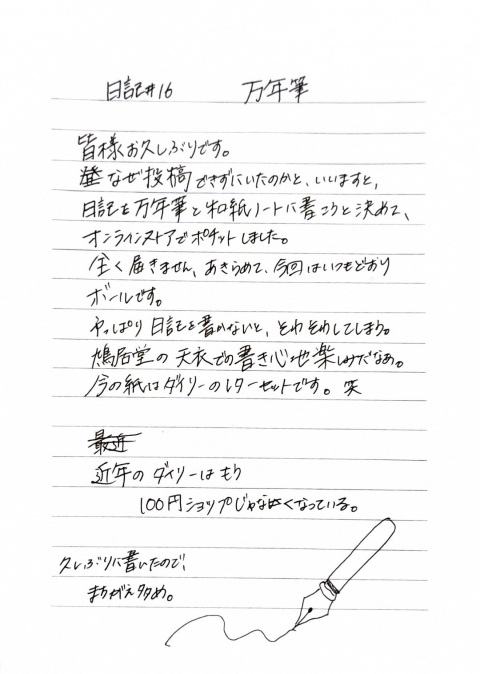 日記#16 万年筆
皆様お久しぶりです。
なぜ投稿できずにいたのかと、いいますと、
日記を万年筆と和紙ノートに書こうと決めて、
オンラインストアでポチットしました。
全く届きません、あきらめて、今回はいつもどおり
ボールです。
やっぱり日記を書かないと、そわそわしてしまう。
鳩居堂の天衣での書き心地楽しみだなぁ。
今の紙はダイソーのレターセットです。笑
最近
近年のダイソーはもう
100円ショップじゃなくなっている。
久しぶりに書いたので、
まちがえ多め。